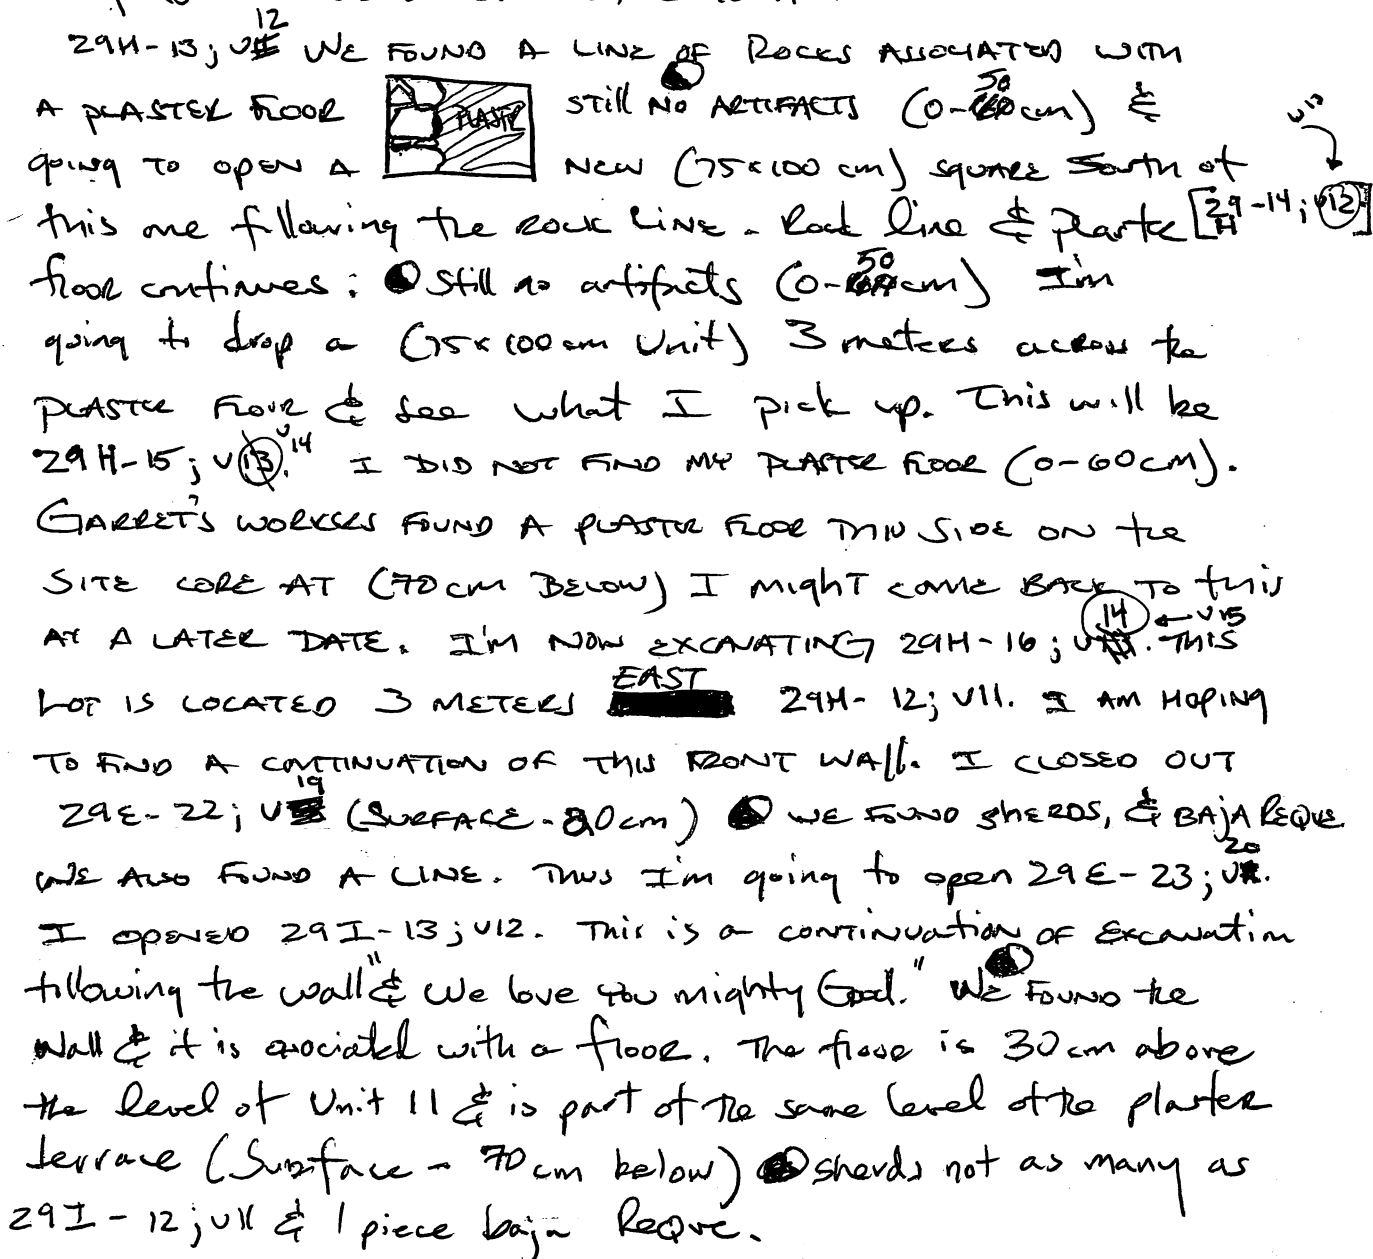 29H-13; U 12 WE FOUND A LINE OF ROCKS ASSOCIATED WITH
A PLASTER FLOOR PLASTR Still NO ARTIFACTS (0-50cm) &
going TO OPEN A NEW (75x100 cm) SQUARE South of
this one following the ROCK LINE. Rock line & plaster [29H-14; U12] U13
floor continues; Still no artifacts (0-50cm) I'm
going to drop a (75x100cm Unit) 3 meters across the
PLASTER FLOUR & See what I pick up. This will be
29H-15; U13. U14 I DID NOT FIND MY PLASTER FLOOR (0-60CM).
GARRET'S WORKERS FOUND A PLASTER FLOOR THIS SIDE ON the
SITE CORE AT (70cm BELOW) I might come BACK TO this
AT A LATER DATE. I'M NOW EXCAVATING 29H-16; U 14 ← U15. THIS
LOT IS LOCATED 3 METERS EAST 29H-12; U11. I AM HOPING
TO FIND A CONTINUATION OF THIS FRONT WALL. I CLOSED OUT
29E-22; U19 (SURFACE-80cm) WE FOUND SHERDS, & BAJA REQUE
WE ALSO FOUND A LINE. Thus I'm going to open 29E-23; U20.
I OPENED 29I-13; U12. This is a continuation OF Excavation
following the wall "& We love you mighty God." WE FOUND the
Wall & it is asociated with a floor. The floor is 30cm above
the level of Unit 11 & is part of the same level of the plaster
terrace (Surface - 70cm below) sherds not as many as
29I-12; U11 & 1 piece baja Reque.